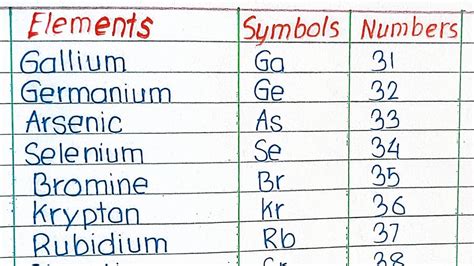 Elements Symbols Numbers
Gallium Ga 31
Germanium Ge 32
Arsenic As 33
Selenium Se 34
Bromine Br 35
Krypton Kr 36
Rubidium Rb 37
38